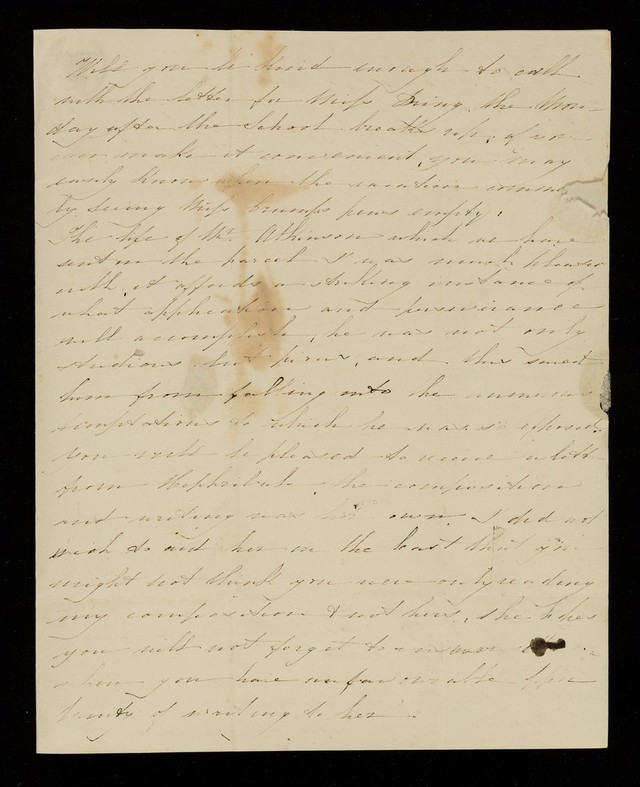 Will you be kind enough to call
with the letter for Miss Dring the Mon-
day after the School breaks up, if you
can make it convenient, you may
easily know when the vacation comme
by seeing Miss pews empty.
The life of Mr. Atkinson which we have
sent in the parcel I was much pleased
with, it affords a striking instance of
what application and perseverance
will accomplish, he was not only
studious but pious, and this saved
him from falling into the numerous
temptations to which he was exposed.
You will be pleased to receive a letter
from Hephzibah the composition
and writing was her own. I did not
wish to aid her in the least that you
might not think you were only reading
my composition & not hers, she hopes
you will not forget to answer
when you have a favourable oppor
tunity of writing to her.